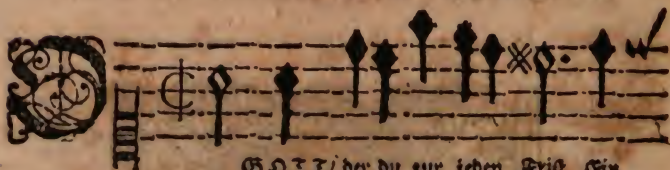 GOTT/ der du zur jeden Frist Ein